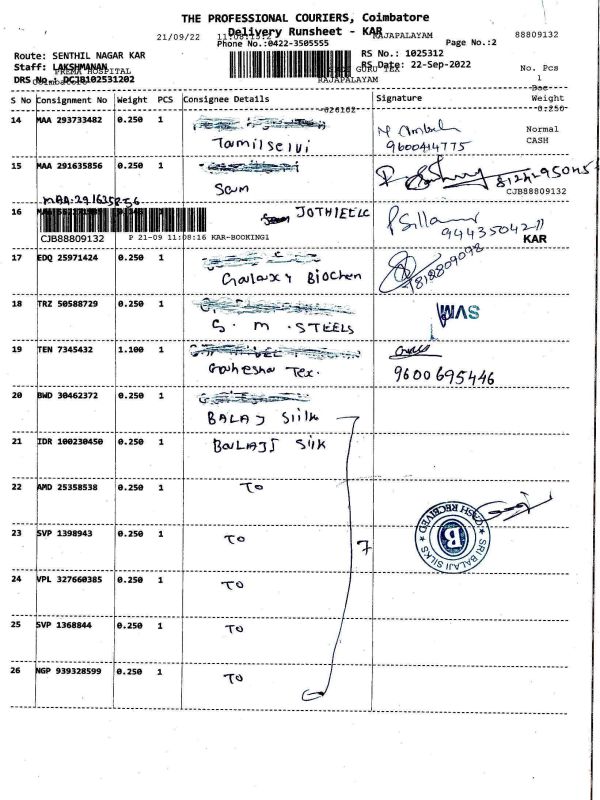 THE PROFESSIONAL COURIERS, Coimbatore
Delivery Runsheet - KAR
21/09/22 RAJAPALAYAM 88809132
Phone No.:0422-3505555 Page No.:2
Route: SENTHIL NAGAR KAR RS No.: 1025312
Staff: LAKSHMANAN RS Date: 22-Sep-2022 No. Pcs
PREMA HOSPITAL GURU TEX 1
DRS No.: DCJB102531202 RAJAPALAYAM Doc
Coimbatore
S No Consignment No Weight PCS Consignee Details Signature Weight
0.250
14 MAA 293733482 0.250 1 Normal
Tamilselvi 9600414775 CASH
15 MAA 291635856 0.250 1
Sam CJB88809132
MAA-291635856
16 JOTHIEELC
CJB88809132 P 21-09 11:08:16 KAR-BOOKING1 9443504211 KAR
17 EDQ 25971424 0.250 1
Galaxy Biochen 818809098
18 TRZ 50588729 0.250 1 SVM
S. M. STEELS
19 TEN 7345432 1.100 1
Gahesha Tex. 9600695446
20 BWD 30462372 0.250 1
BALAJ Siilk
21 IDR 100230450 0.250 1 BALAJI Silk
22 AMD 25358538 0.250 1 TO
CASH RECEIVED
B
SRI BALAJI SILKS
23 SVP 1398943 0.250 1 TO 7
24 VPL 327660385 0.250 1 TO
25 SVP 1368844 0.250 1 TO
26 NGP 939328599 0.250 1 TO